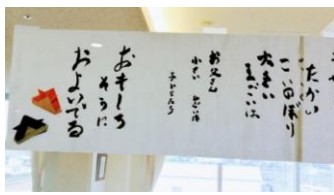 たかい
こいのぼり
大きい
まごいは
お父さん
小さい ひごいは
子どもたち
おもしろ
そうに
およいでる